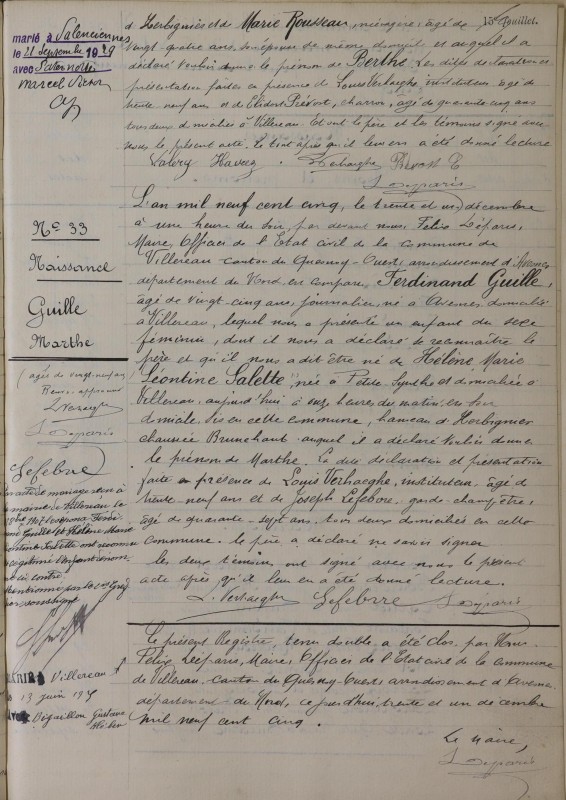 15e Feuillet.
marié à Valenciennes
le 21 Septembre 1929
avec
Marcel Victor
d'Herbignies et de Marie Rousseau, ménagère, âgée de
vingt-quatre ans, son épouse, de même domicile et auquel il a
déclaré vouloir donner le prénom de Berthe. Les dites déclaration et
présentation faites en présence de Louis Verhaeghe, instituteur, âgé de
trente neuf ans et de Prévost, charron, âgé de quarante cinq ans
tous deux domiciliés à Villereau. Et ont le père et les témoins signé avec
nous le présent acte. Le tout après qu'il leur en a été donné lecture
Valéry Havez Verhaeghe Prévost E
Lesparis
No 33
Naissance
Guille
Marthe
L'an mil neuf cent cinq, le trente et un décembre
à une heure du soir, par devant nous, Félix Lesparis,
Maire, Officier de l'Etat civil de la commune de
Villereau canton du Quesnoy-Ouest, arrondissement d'Avesnes
département du Nord, est comparu, Ferdinand Guille,
âgé de vingt-cinq ans, journalier, né à Avesnes, domicilié
à Villereau, lequel nous a présenté un enfant du sexe
féminin, dont il nous a déclaré se reconnaître le
père et qu'il nous a dit être né de Hélène Marie
Léontine Salette, née à Petite-Synthe et domiciliée à
Villereau, aujourd'hui à onze heures du matin, en son
domicile sis en cette commune, hameau d'Herbignies
chaussée Brunehaut auquel il a déclaré vouloir donner
le prénom de Marthe. La dite déclaration et présentation
faite en présence de Louis Verhaeghe, instituteur, âgé de
trente-neuf ans et de Joseph Lefebvre, garde-champêtre,
âgé de quarante-sept ans, tous deux domiciliés en cette
commune. Le père a déclaré ne savoir signer
les deux témoins ont signé avec nous le présent
acte après qu'il leur en a été donné lecture.
L. Verhaeghe Lefebvre Lesparis
(âgée de vingt-neuf ans
L. Verhaeghe
Lesparis
Lefebvre
à
la mairie de Villereau le
1907
Guille et Hélène Marie
Léontine Salette ont reconnu
et légitimé l'enfant dénommé
ci-contre.
Mentionné par le Greffier
soussigné
Villereau
13 juin
Gustave
Le présent Registre, tenu double, a été clos par Nous
Félix Lesparis, Maire, Officier de l'Etat civil de la commune
de Villereau, canton du Quesnoy-Ouest, arrondissement d'Avesnes
département du Nord, ce jourd'hui trente et un décembre
mil neuf cent cinq.
Le Maire,
Lesparis